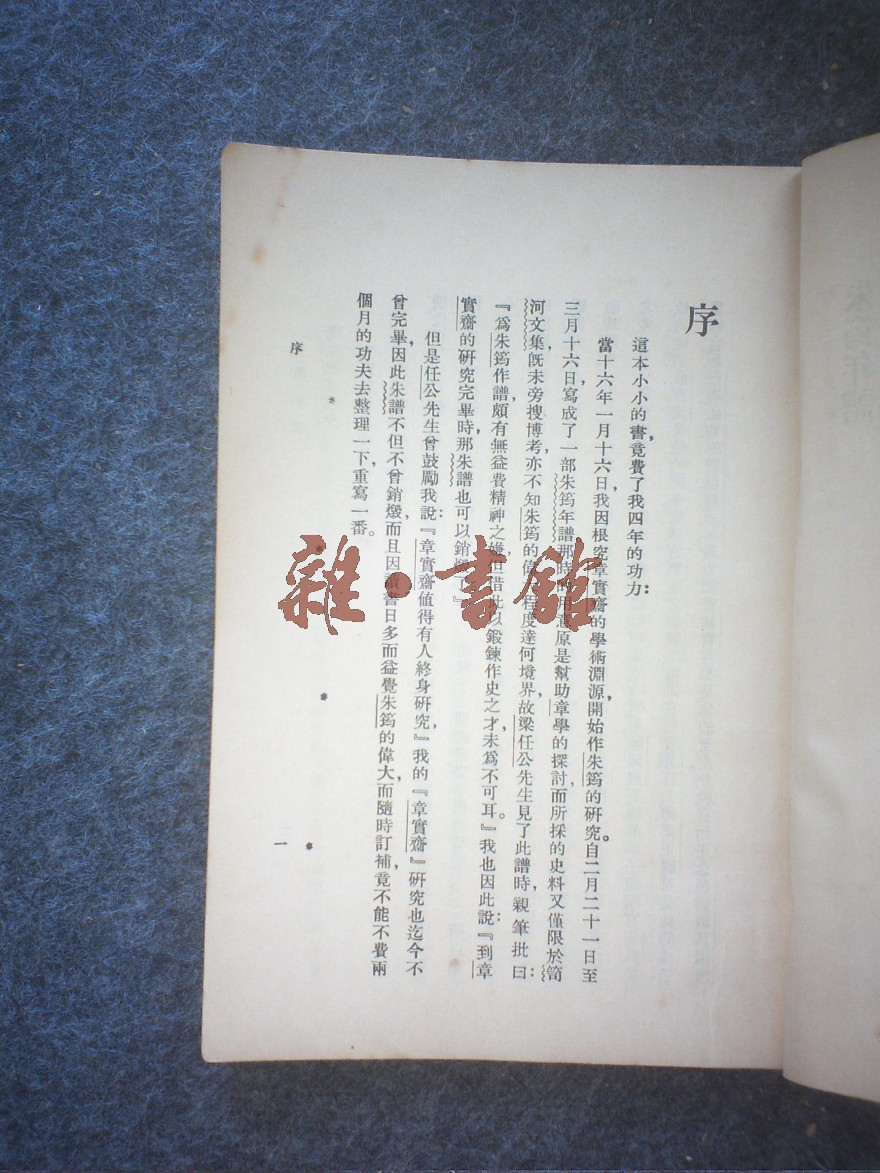 序
這本小小的書，竟費了我四年的功力：
當十六年一月十六日，我因根究章實齋的學術淵源，開始作朱筠的研究。自二月二十一日至
三月十六日，寫成了一部朱筠年譜，那時的意原是幫助章學的探討，而所採的史料又僅限於笥
河文集，旣未旁搜博考，亦不知朱筠的偉程度達何境界，故梁任公先生見了此譜時，親筆批曰：
『爲朱筠作譜，頗有無益費精神之嫌，但借此以鍛鍊作史之才，未爲不可耳。』我也因此說：『到章
實齋的研究完畢時，那朱譜也可以銷燬了』
但是任公先生曾鼓勵我說：『章實齋値得有人終身研究』我的『章實齋』研究也迄今不
曾完畢，因此朱譜不但不曾銷燬，而且因讀書日多而益覺朱筠的偉大，而隨時訂補，竟不能不費兩
個月的功夫去整理一下，重寫一番。
序
一
雜·書館